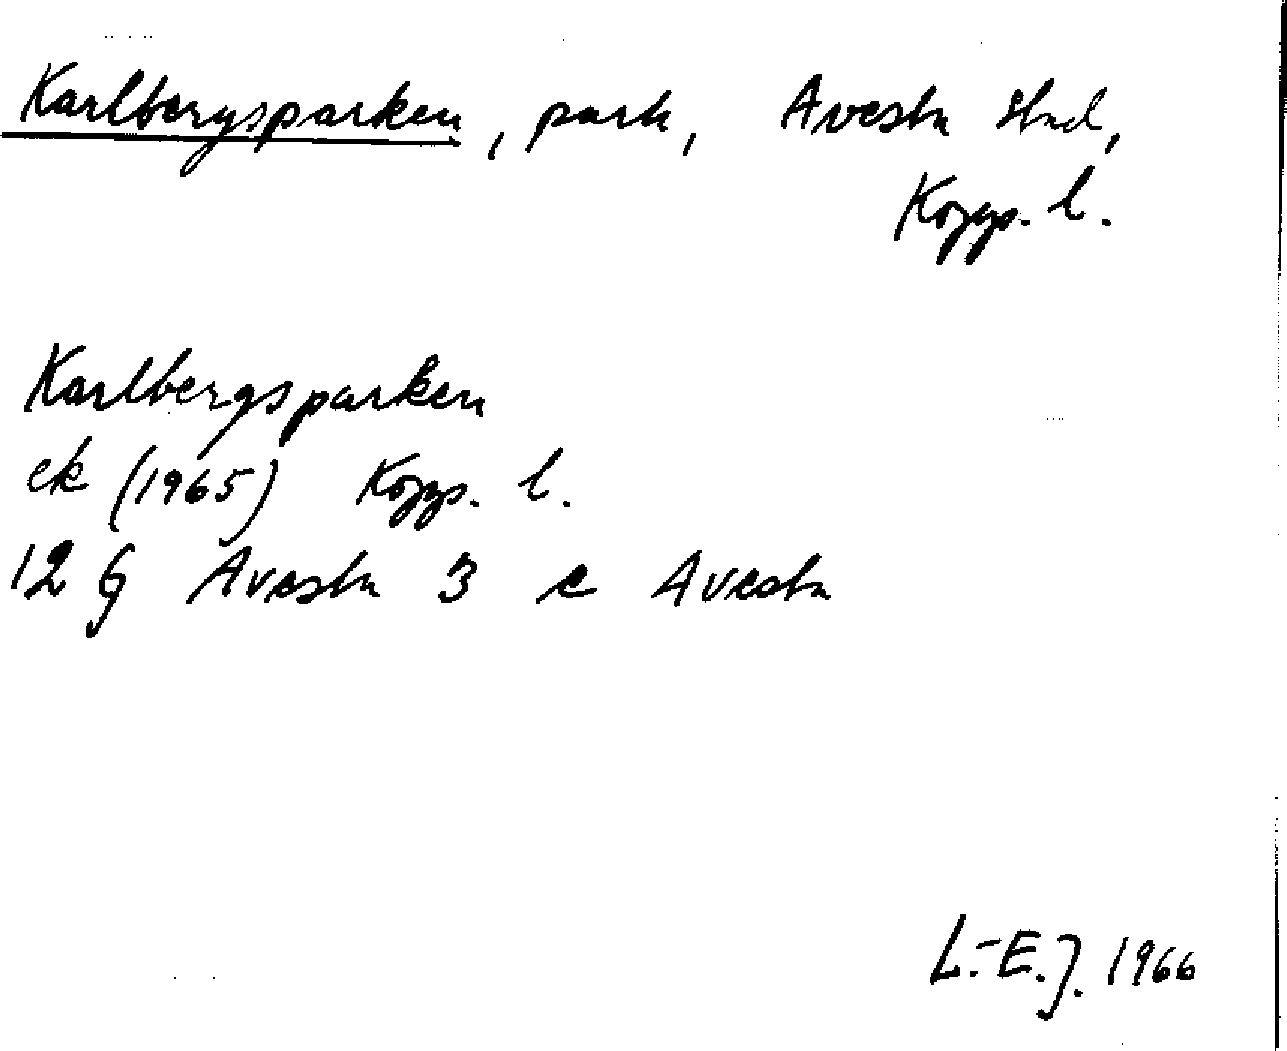 Karlbergsparken, park, Avesta stad,
Kopp. l.
Karlbergsparken
ek (1965) Kopp. l.
12 G Avesta 3 c Avesta
L.-E.J. 1966